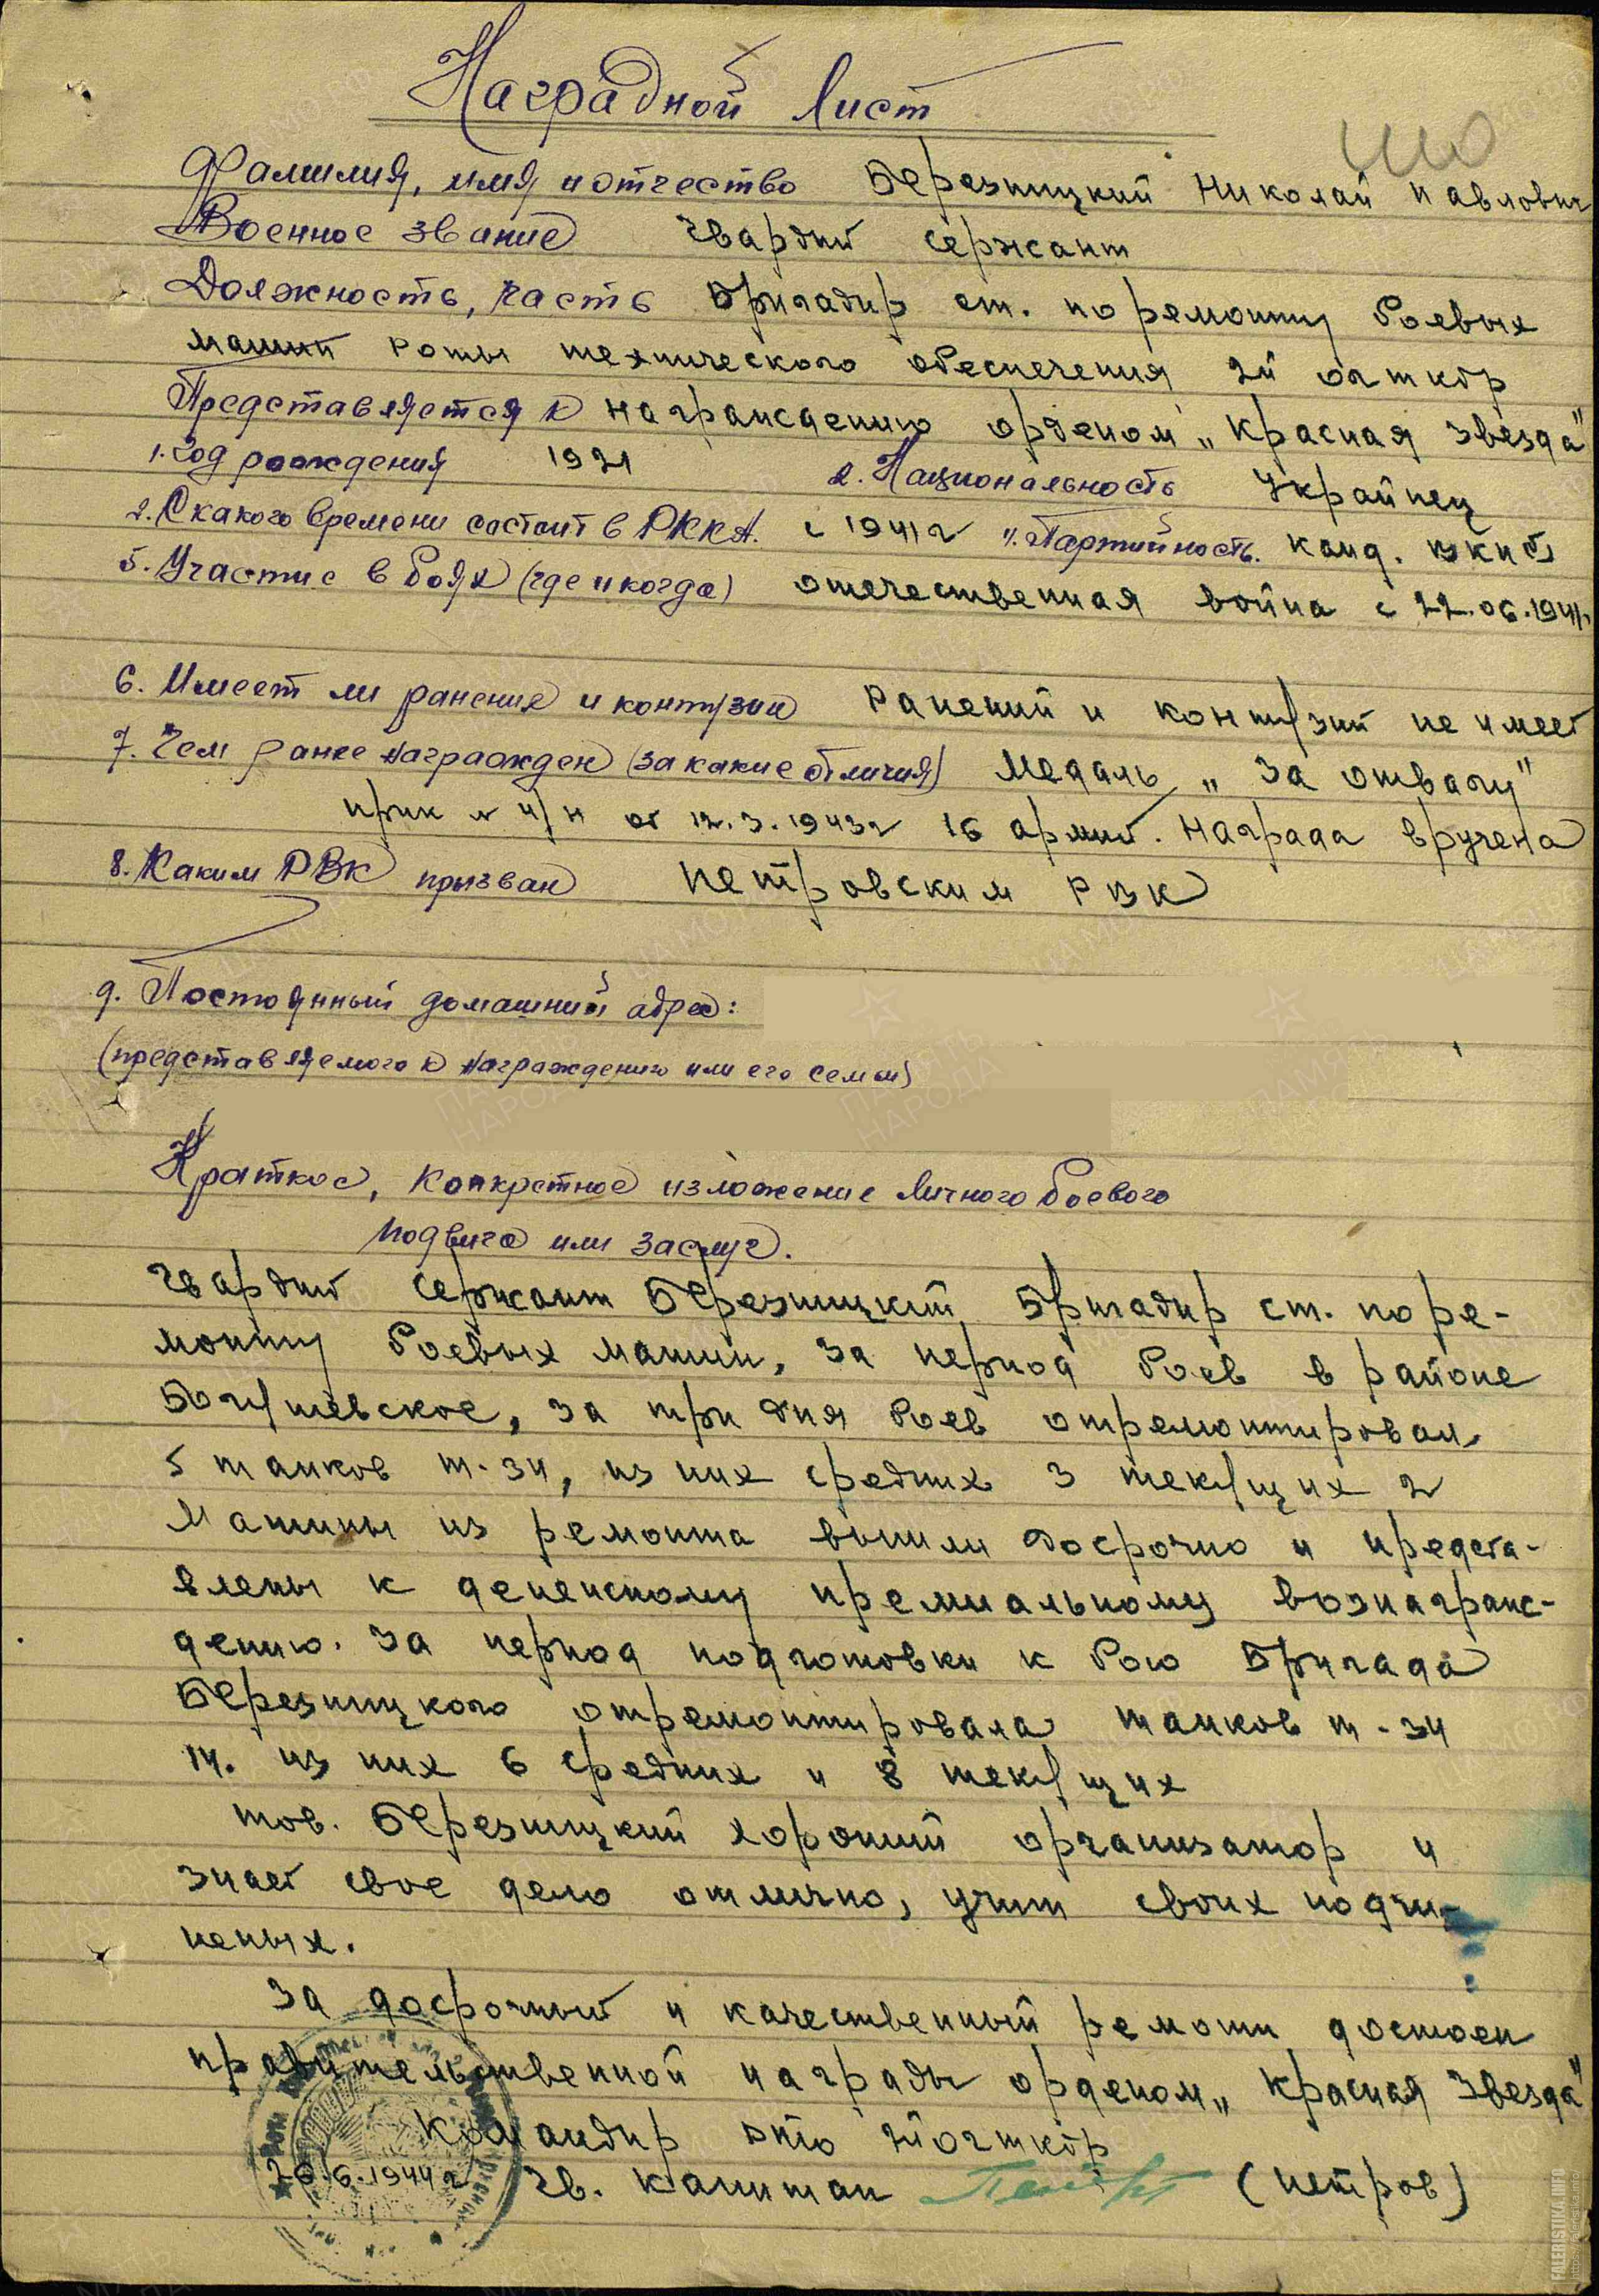 Наградной Лист
Фамилия, имя и отчество Березницкий Николай Павлович
Военное звание гвардии сержант
Должность, часть Бригадир ст. по ремонту боевых
машин роты технического обеспечения 2й огткбр
Представляется к награждению орденом „Красная звезда"
1. Год рождения 1921 2. Национальность Украинец
2. С какого времени состоит в РККА. с 1941г 4. Партийность. канд. ВКПб
5. Участие в боях (где и когда) отечественная война с 22.06.1941г.
6. Имеет ли ранения и контузии Ранений и контузий не имеет
7. Чем ранее награжден (за какие отличия) Медаль „За отвагу"
прик № 4/н от 12.3.1943г 16 армии. Награда вручена
8. Каким РВК призван Петровским РВК
9. Постоянный домашний адрес:
(представляемого к награждению или его семьи)
Краткое, конкретное изложение личного боевого
подвига или заслуг.
Гвардии сержант Березницкий, Бригадир ст. по ре-
монту боевых машин, за период боев в районе
Богушевское, за три дня боев отремонтировал
5 танков т-34, из них средних 3 текущих 2
Машины из ремонта вышли досрочно и предста-
влены к денежному премиальному вознаграж-
дению. За период подготовки к бою Бригада
Березницкого отремонтировала танков т-34
14. из них 6 средних и 8 текущих
тов. Березницкий хороший организатор и
знает свое дело отлично, учит своих подчи-
неных.
За досрочный и качественный ремонт достоен
правительственной награды орденом „Красная звезда"
Командир рто 2й огткбр
26.6.1944г Гв. капитан (Петров)
FALERISTIKA.INFO